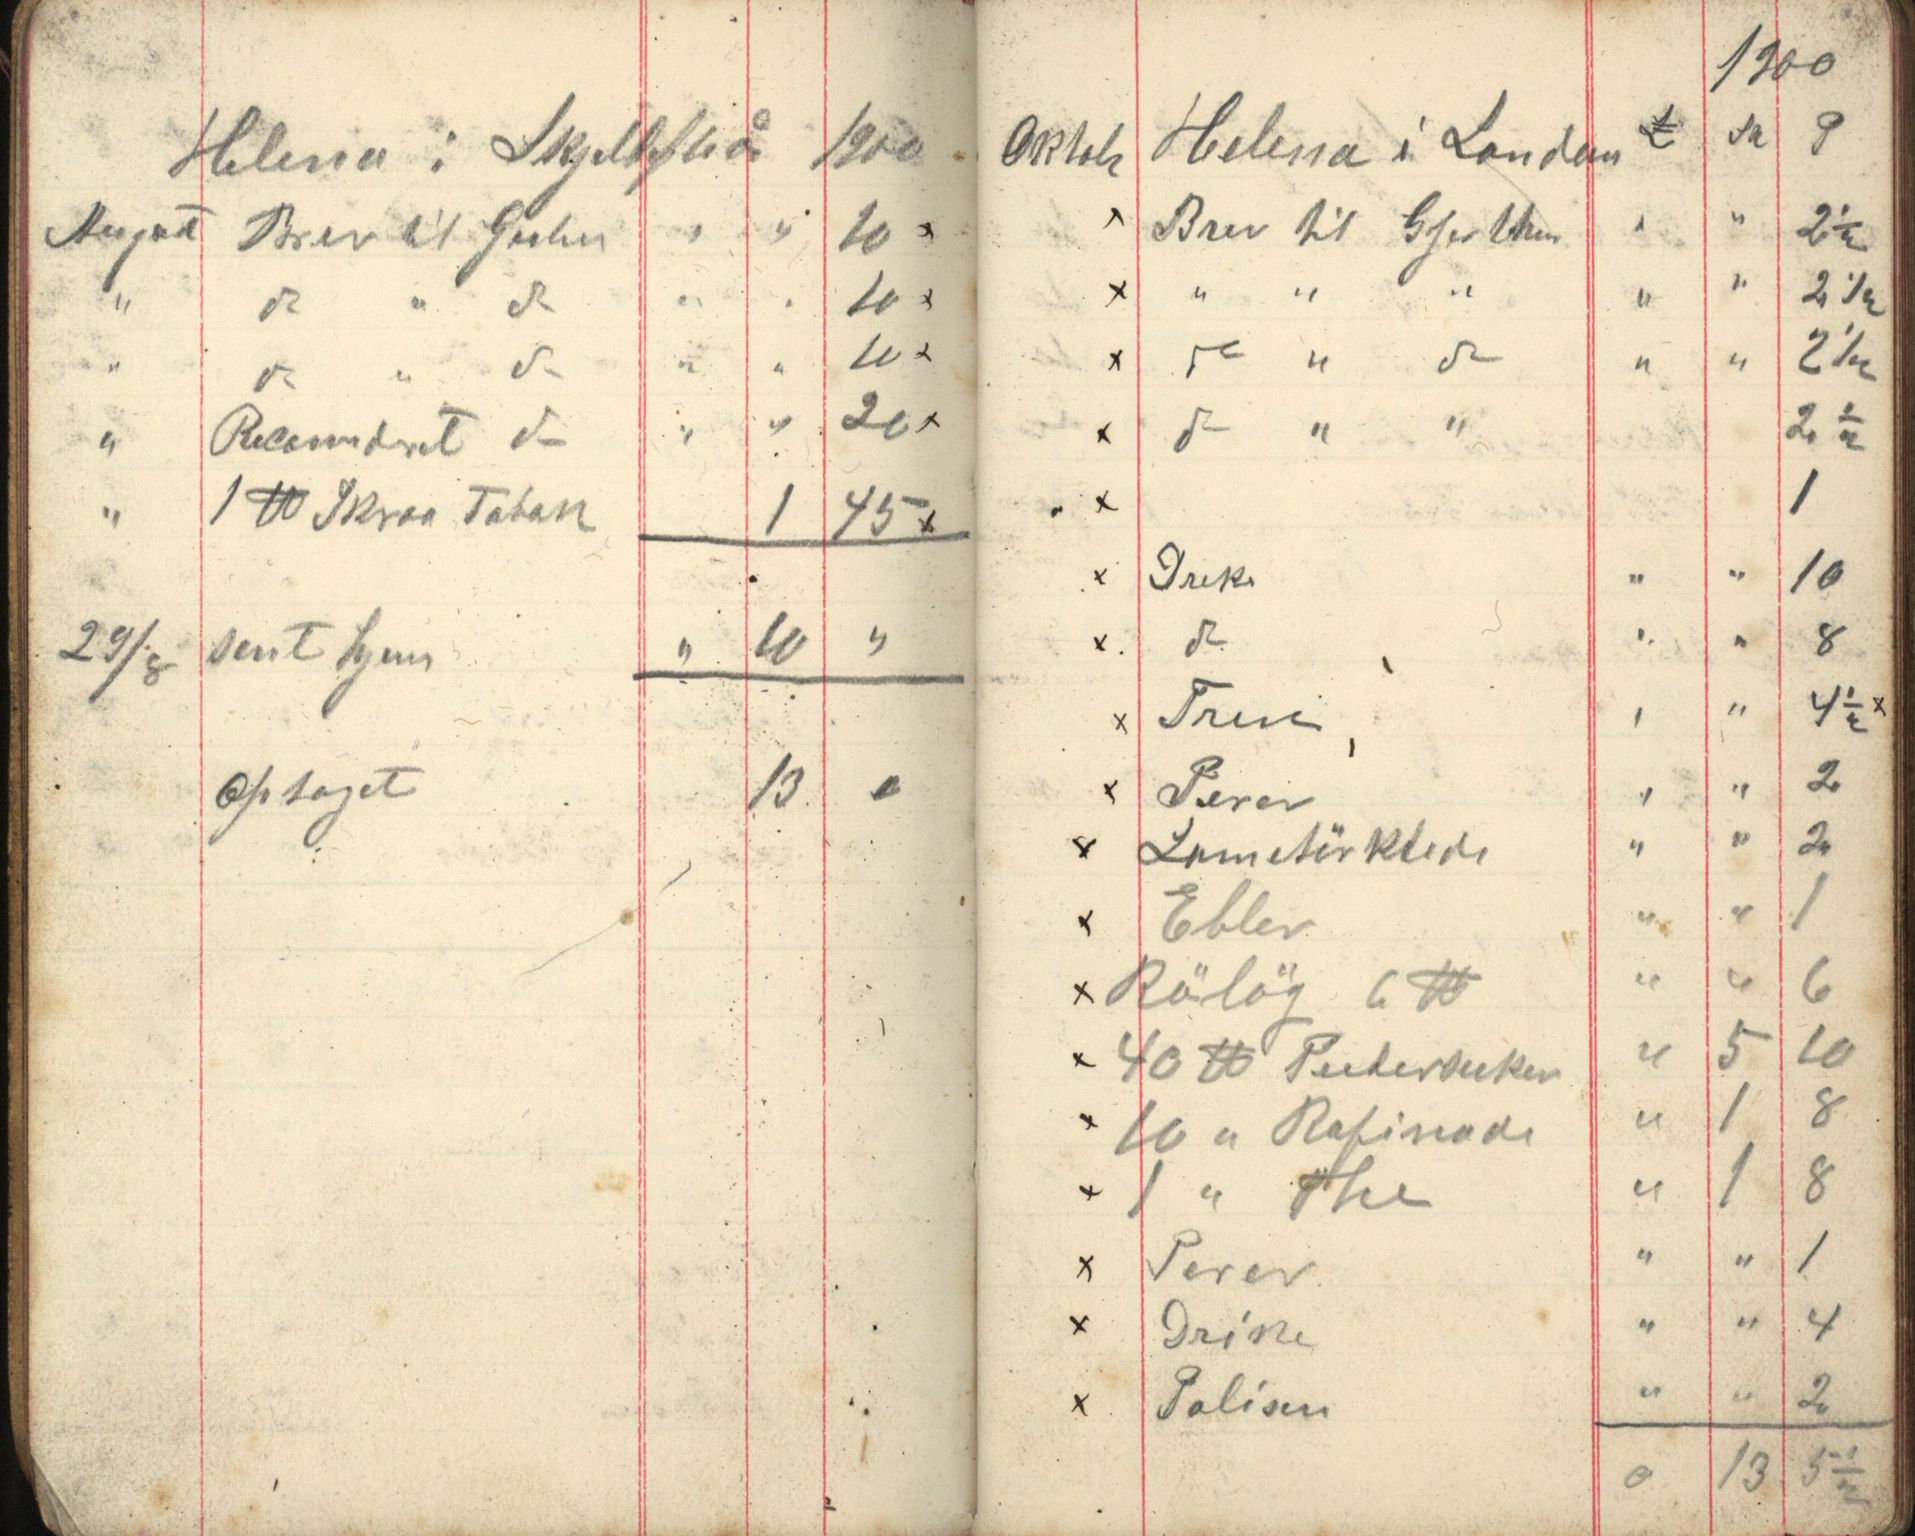 Helena i Skjellefteå 1900
August Brev til Gjerlin " " 10 x
" do " do " " 10 x
" do " do " " 10 x
" Recomderet do " " 20 x
" 1 ℔ Skraa Tabak 1 45 x
29/8 sent hjem " 10 "
optaget 13 0
1900
Oktob Helena i London £ sh P
x Brev til " " 2 1/2
x " " " " " 2 1/2
x do " do " " 2 1/2
x do " " 2 1/2
" x 1
x Dreke " " 10
x do " " 8
x " " 4 1/2 x
x Perer " " 2
x Lometörklede " " 2
x Ebler " " 1
x Rölög 6 ℔ " " 6
x 40 ℔ Pudersuker " 5 10
x 10 " Rafinade " 1 8
x 1 " The " 1 8
x Perer " " 1
x Drike " " 4
x Polisen " " 2
0 13 5 1/2